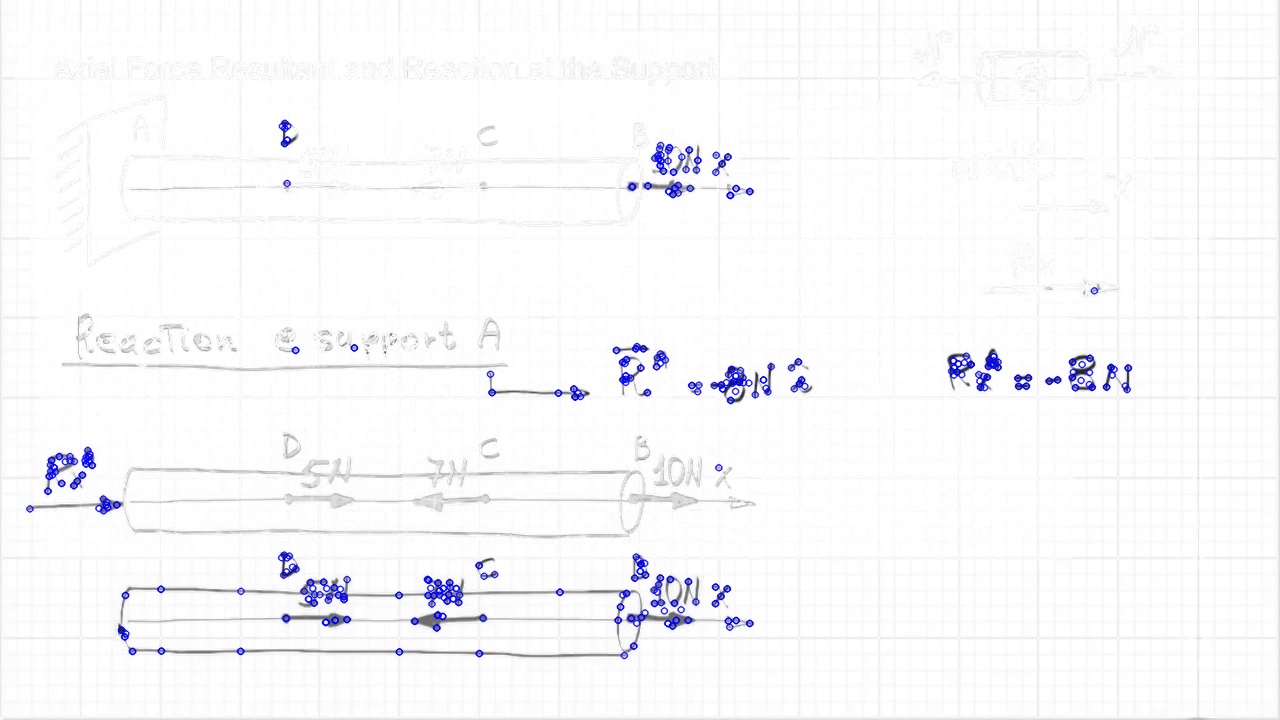 Axial Force Resultant and Reaction at the Support
N N
A D 5N 7N C B 10N x
x
Rx
Reaction @ support A
-8N Rx = -8N
D 5N 7N C B 10N x
D 5N 7N C B 10N x